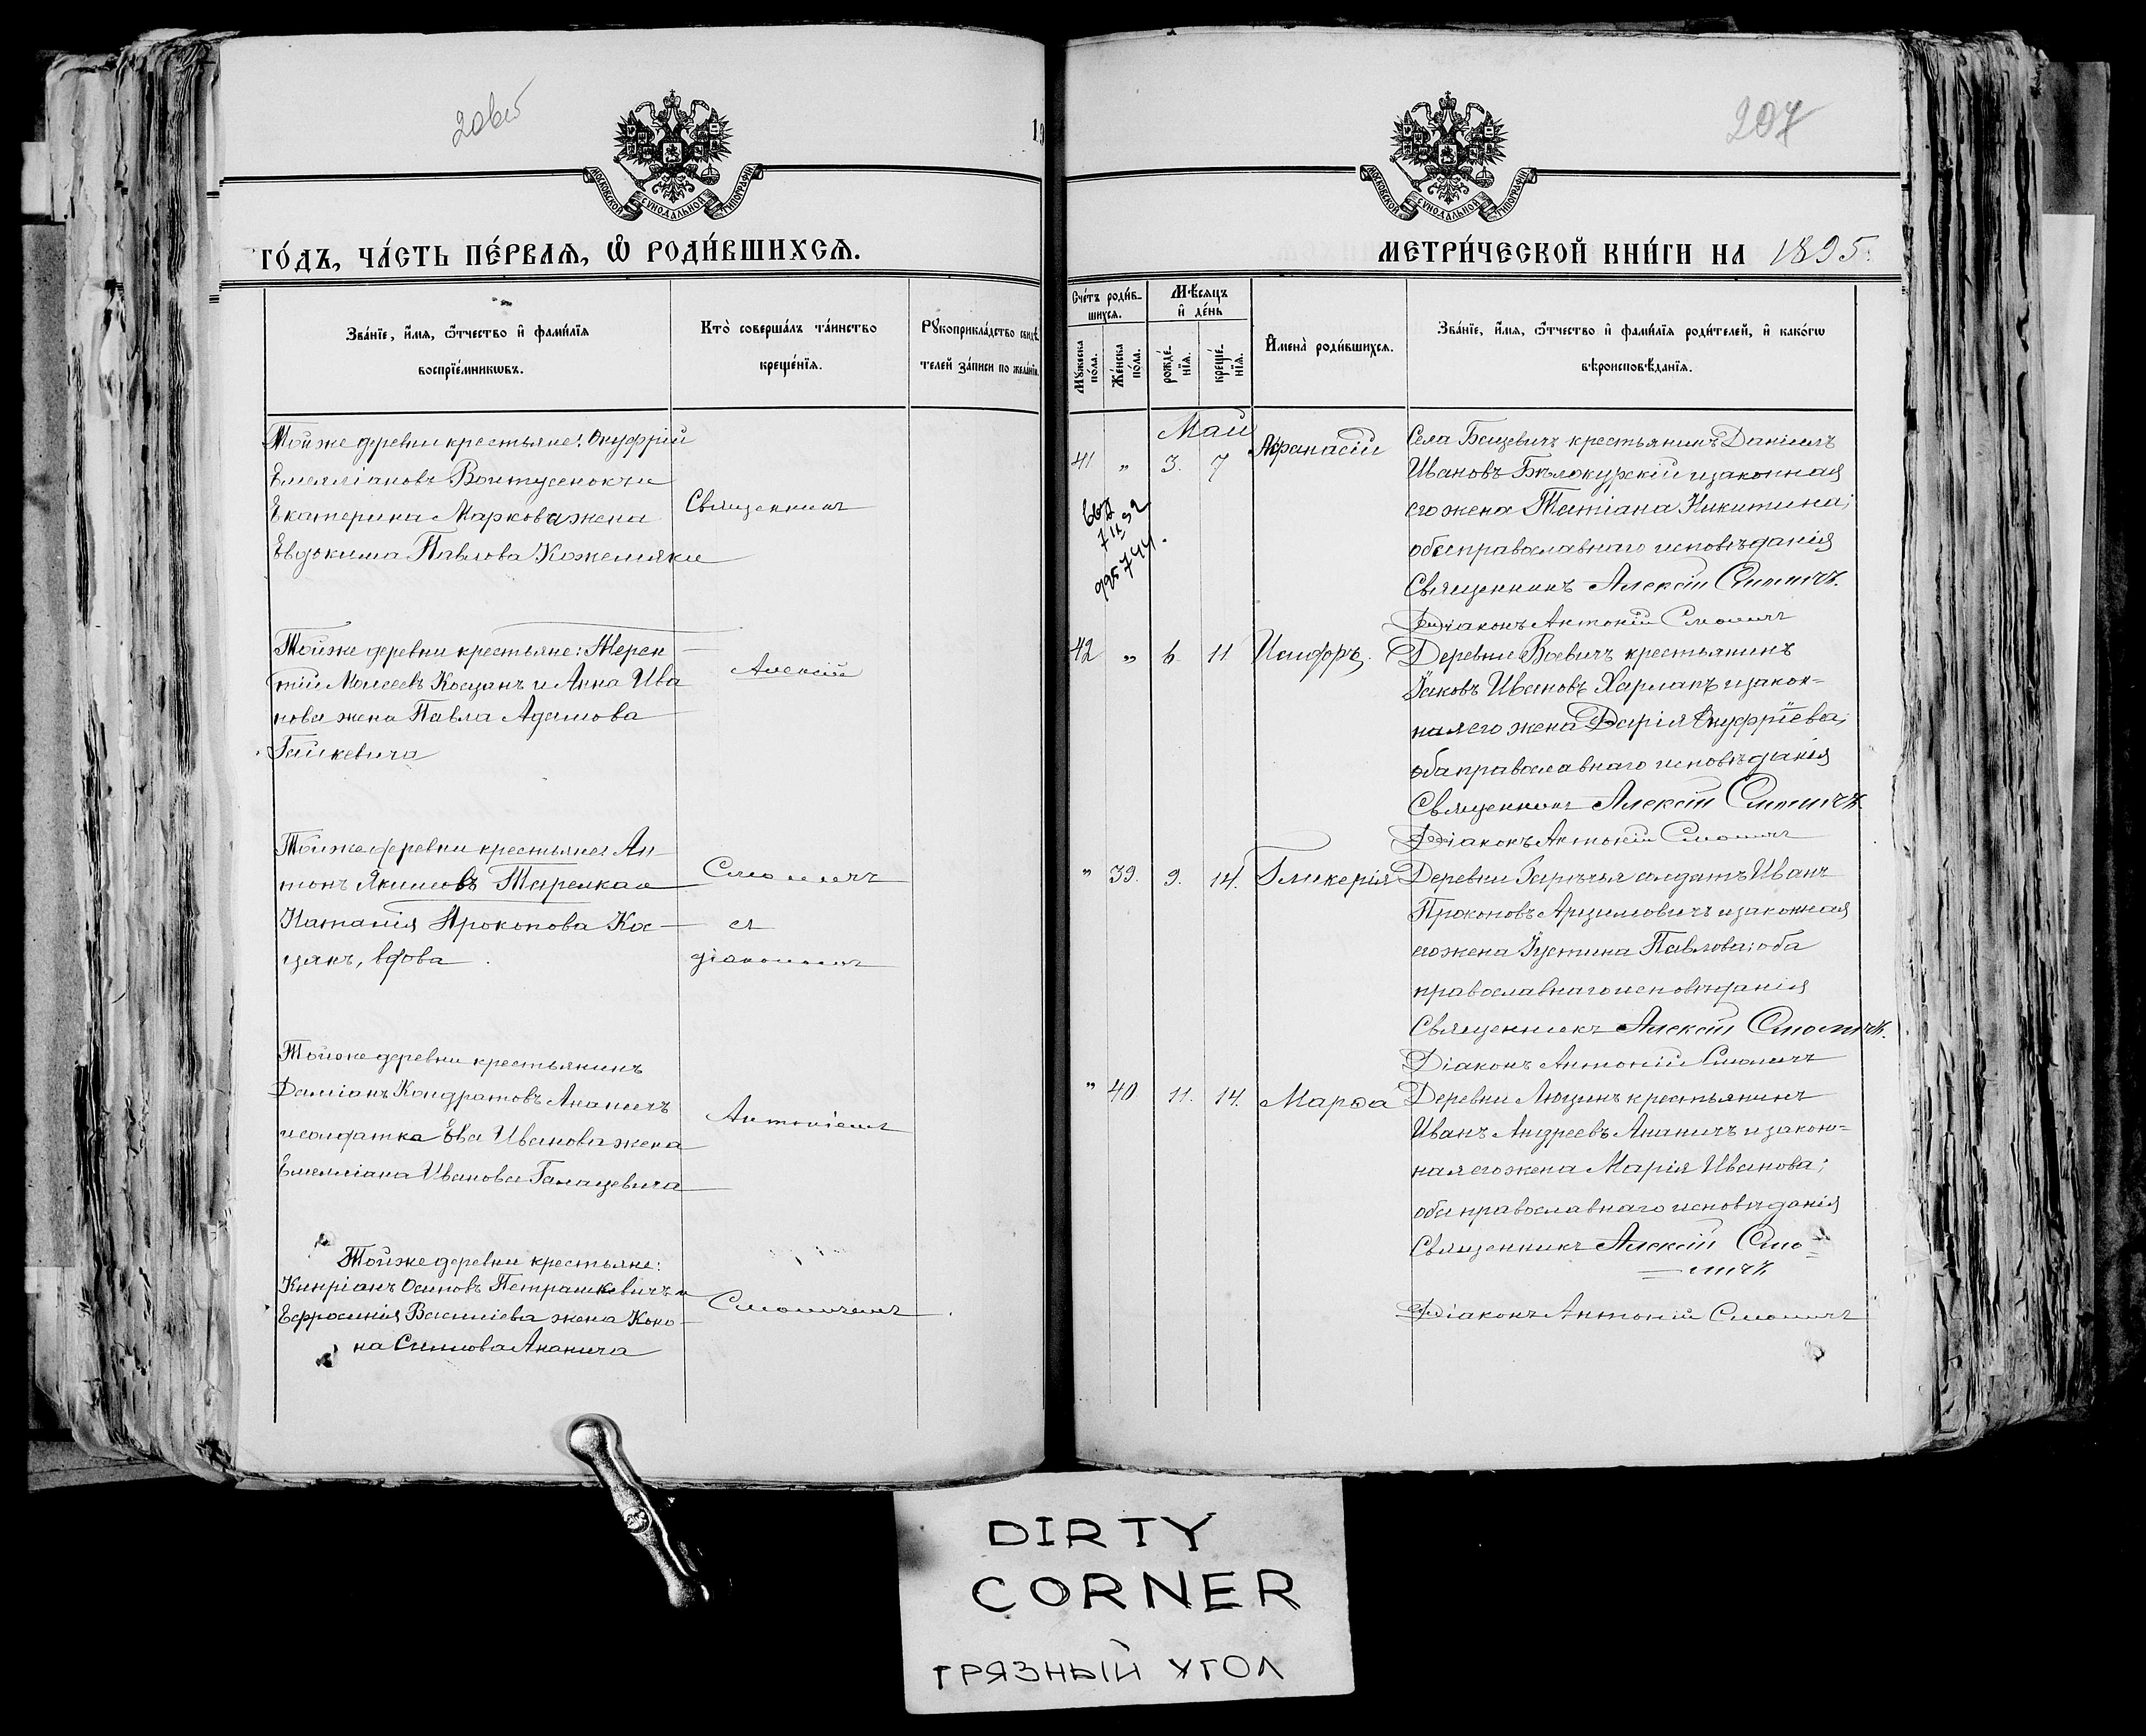 206об
МОСКОВСКОЙ СУНОДАЛЬНОЙ ТИПОГРАФІИ
ГО́ДЪ, ЧА́СТЬ ПЕ́РВАЯ, Ѽ РОДИ́ВШИХСѦ.
Зва́нїе, и҆́мѧ, ѻ҆́тчество и҆ фами́лїѧ
воспрїе́мникѡвъ.
Кто̀ соверша́лъ та́инство
креще́нїѧ.
Рꙋкоприкла́дство свидѣ́
телей за́писи по жела́нїю
Той же деревни крестьяне: Онуфрій
Емеліановъ Вонтусенокъ и
Екатерина Маркова жена
Евдокима Павлова Кожемяки
Священникъ
Той же деревни крестьяне: Терен
тій Моисеевъ Косцанъ и Анна Ива
нова жена Павла Адамова
Гайкевича
Алексій
Той же деревни крестьяне: Ан
тонъ Якимовъ
Наталія Прокопова Кос
цякъ, вдова
Смоличъ
съ
діакономъ
Той же деревни крестьянинъ
Даміанъ Кондратовъ Ананичъ
и солдатка Ева Иванова жена
Емеліана Иванова Галацевича
Антоніемъ
Той же деревни крестьяне:
Кипріанъ Осиповъ Петрашкевичъ и
Евфросинія Василіева жена Коно
на Симова Ананича
Смоличемъ
207
МОСКОВСКОЙ СУНОДАЛЬНОЙ ТИПОГРАФІИ
МЕТРИ́ЧЕСКОЙ КНИ́ГИ НА 1895.
Сче́тъ роди́в-
шихсѧ.
Мѣ́сѧцъ
и҆ де́нь
Мꙋжеска по́ла.
Же́нска по́ла.
рожде́-нїѧ.
креще́-нїѧ.
И҆мена̀ роди́вшихсѧ.
Зва́нїе, и҆́мѧ, ѻ҆́тчество и҆ фами́лїѧ роди́телей, и҆ како́гѡ
вѣроисповѣ́данїѧ.
Май
41 „ 3. 7 Афанасій
Села Бацевичъ крестьянинъ Даніилъ
Ивановъ Бѣлокурскій и законная
его жена Татіана Никитина;
оба православнаго исповѣданія
Священникъ Алексій Смоличъ.
Діаконъ Антоній Смоличъ
42 „ 6. 11 Исидоръ.
Деревни Воевичъ крестьянинъ
Іаковъ Ивановъ Харланъ и закон=
ная его жена Дарія Онуфріева;
оба православнаго исповѣданія
Священникъ Алексій Смоличъ
Діаконъ Антоній Смоличъ
„ 39. 9. 14. Гликерія
Деревни Зарѣчья солдатъ Иванъ
Прокоповъ Арцимовичъ и законная
его жена Іустина Павлова; оба
православнаго исповѣданія
Священникъ Алексій Смоличъ.
Діаконъ Антоній Смоличъ
„ 40. 11. 14. Марѳа
Деревни Люцинъ крестьянинъ
Иванъ Андреевъ Ананичъ и закон=
ная его жена Марія Иванова;
оба православнаго исповѣданія
Священникъ Алексій Смо=
личъ
Діаконъ Антоній Смоличъ
DIRTY
CORNER
ГРЯЗНЫЙ УГОЛ